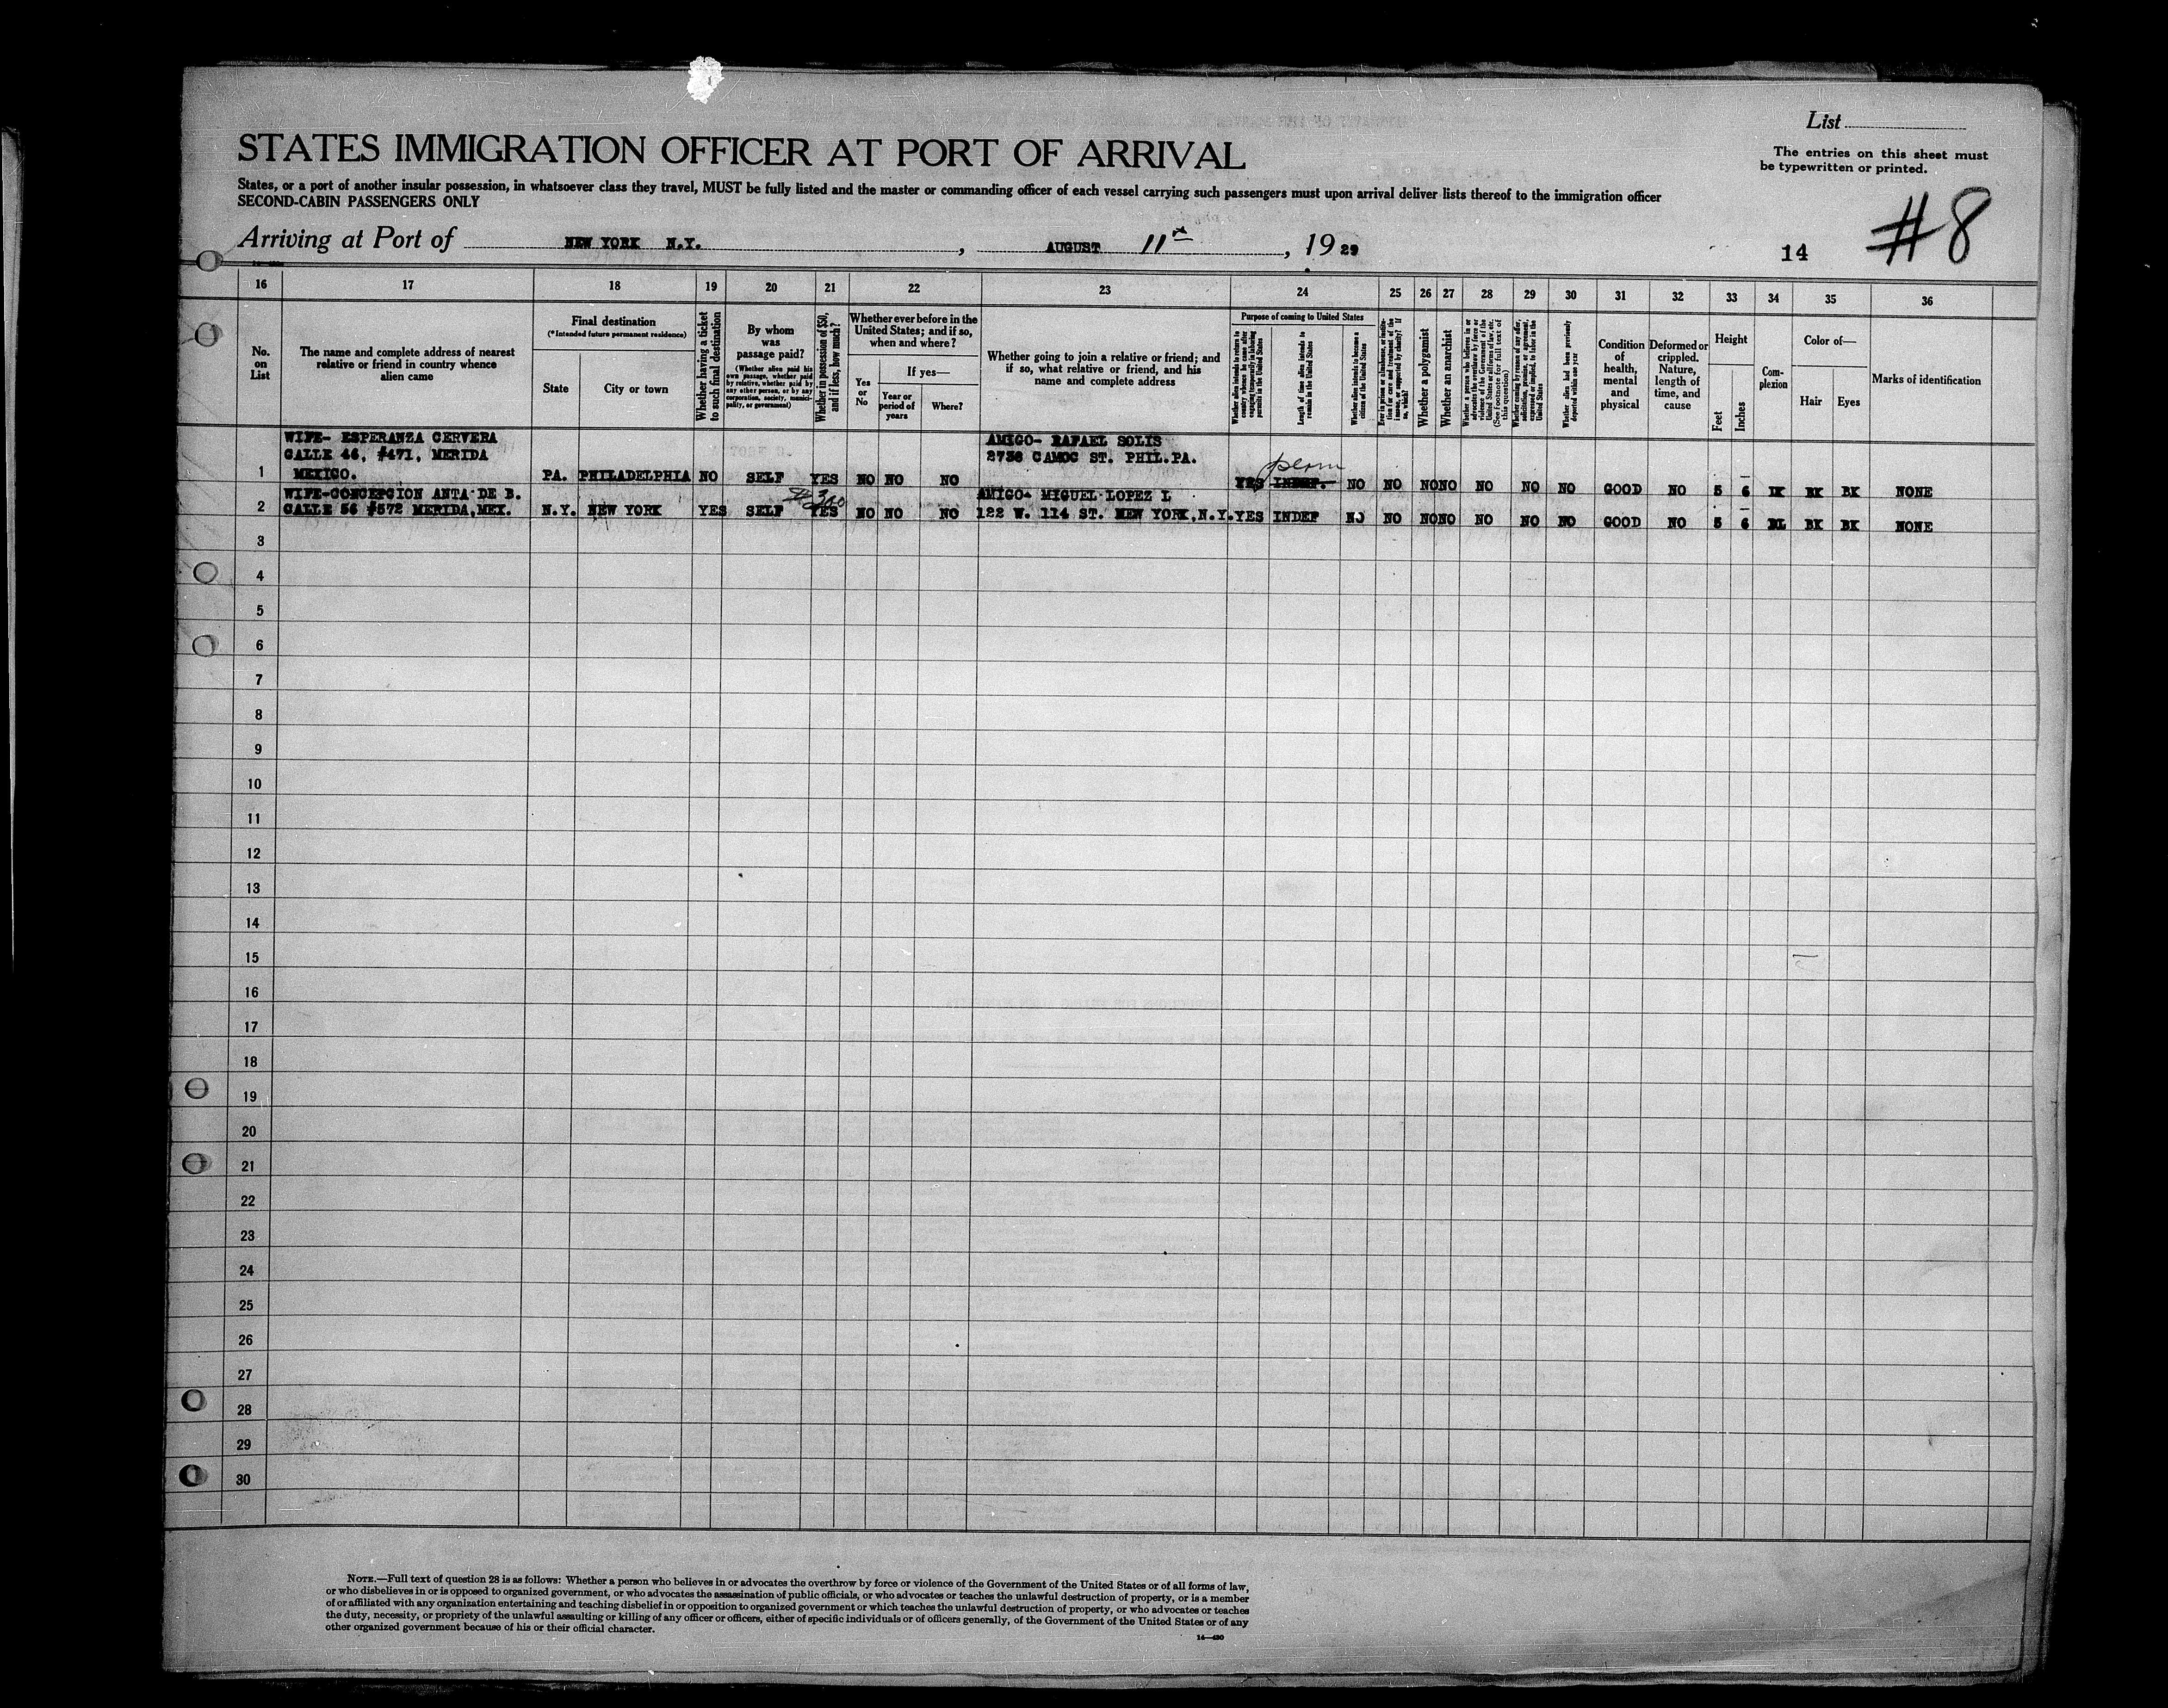 List
The entries on this sheet must
be typewritten or printed.
STATES IMMIGRATION OFFICER AT PORT OF ARRIVAL
States, or a port of another insular possession, in whatsoever class they travel, MUST be fully listed and the master or commanding officer of each vessel carrying such passengers must upon arrival deliver lists thereof to the immigration officer
SECOND-CABIN PASSENGERS ONLY
Arriving at Port of NEW YORK N.Y. , AUGUST 11th , 1929
14 #8
16 17 18 19 20 21 22 23 24 25 26 27 28 29 30 31 32 33 34 35 36
No.
on
List
The name and complete address of nearest
relative or friend in country whence
alien came
Final destination
(*Intended future permanent residence)
State
City or town
Whether having a ticket
to such final destination
By whom
was
passage paid?
(Whether alien paid his
own passage, whether paid
by relative, whether paid by
any other person, or by any
corporation, society, munici-
pality, or government)
Whether in possession of $50,
and if less, how much?
Whether ever before in the
United States; and if so,
when and where?
Yes
or
No
If yes—
Year or
period of
years
Where?
Whether going to join a relative or friend; and
if so, what relative or friend, and his
name and complete address
Purpose of coming to United States
Whether alien intends to return to
country whence he came after
engaging temporarily in laboring
pursuits in the United States
Length of time alien intends to
remain in the United States
Whether alien intends to become a
citizen of the United States
Ever in prison or almshouse, or institu-
tion for care and treatment of the
insane, or supported by charity? If
so, which?
Whether a polygamist
Whether an anarchist
Whether a person who believes in or
advocates the overthrow by force or
violence of the Government of the
United States or all forms of law, etc.
(See footnote for full text of
this question)
Whether coming by reason of any offer,
solicitation, promise, or agreement,
expressed or implied, to labor in the
United States
Whether alien had been previously
deported within one year
Condition
of
health,
mental
and
physical
Deformed or
crippled.
Nature,
length of
time, and
cause
Height
Feet
Inches
Com-
plexion
Color of—
Hair
Eyes
Marks of identification
WIFE- ESPERANZA CERVERA AMIGO- RAFAEL SOLIS
CALLE 46, #471, MERIDA 2736 CAMOC ST. PHIL.PA.
perm
1 MEXICO. PA. PHILADELPHIA NO SELF YES NO NO NO YES INDEF. NO NO NO NO NO NO NO GOOD NO 5 6 BK BK NONE
WIFE-CONCEPCION ANTA DE B. $300 AMIGO- MIGUEL LOPEZ L
2 CALLE 56 #572 MERIDA,MEX. N.Y. NEW YORK YES SELF YES NO NO NO 122 W. 114 ST. NEW YORK,N.Y. YES INDEF NO NO NO NO NO NO NO GOOD NO 5 6 BK BK NONE
3
4
5
6
7
8
9
10
11
12
13
14
15
16
17
18
19
20
21
22
23
24
25
26
27
28
29
30
NOTE.—Full text of question 28 is as follows: Whether a person who believes in or advocates the overthrow by force or violence of the Government of the United States or of all forms of law,
or who disbelieves in or is opposed to organized government, or who advocates the assassination of public officials, or who advocates or teaches the unlawful destruction of property, or is a member
of or affiliated with any organization entertaining and teaching disbelief in or opposition to organized government or which teaches the unlawful destruction of property, or who advocates or teaches
the duty, necessity, or propriety of the unlawful assaulting or killing of any officer or officers, either of specific individuals or of officers generally, of the Government of the United States or of any
other organized government because of his or their official character.
14—430